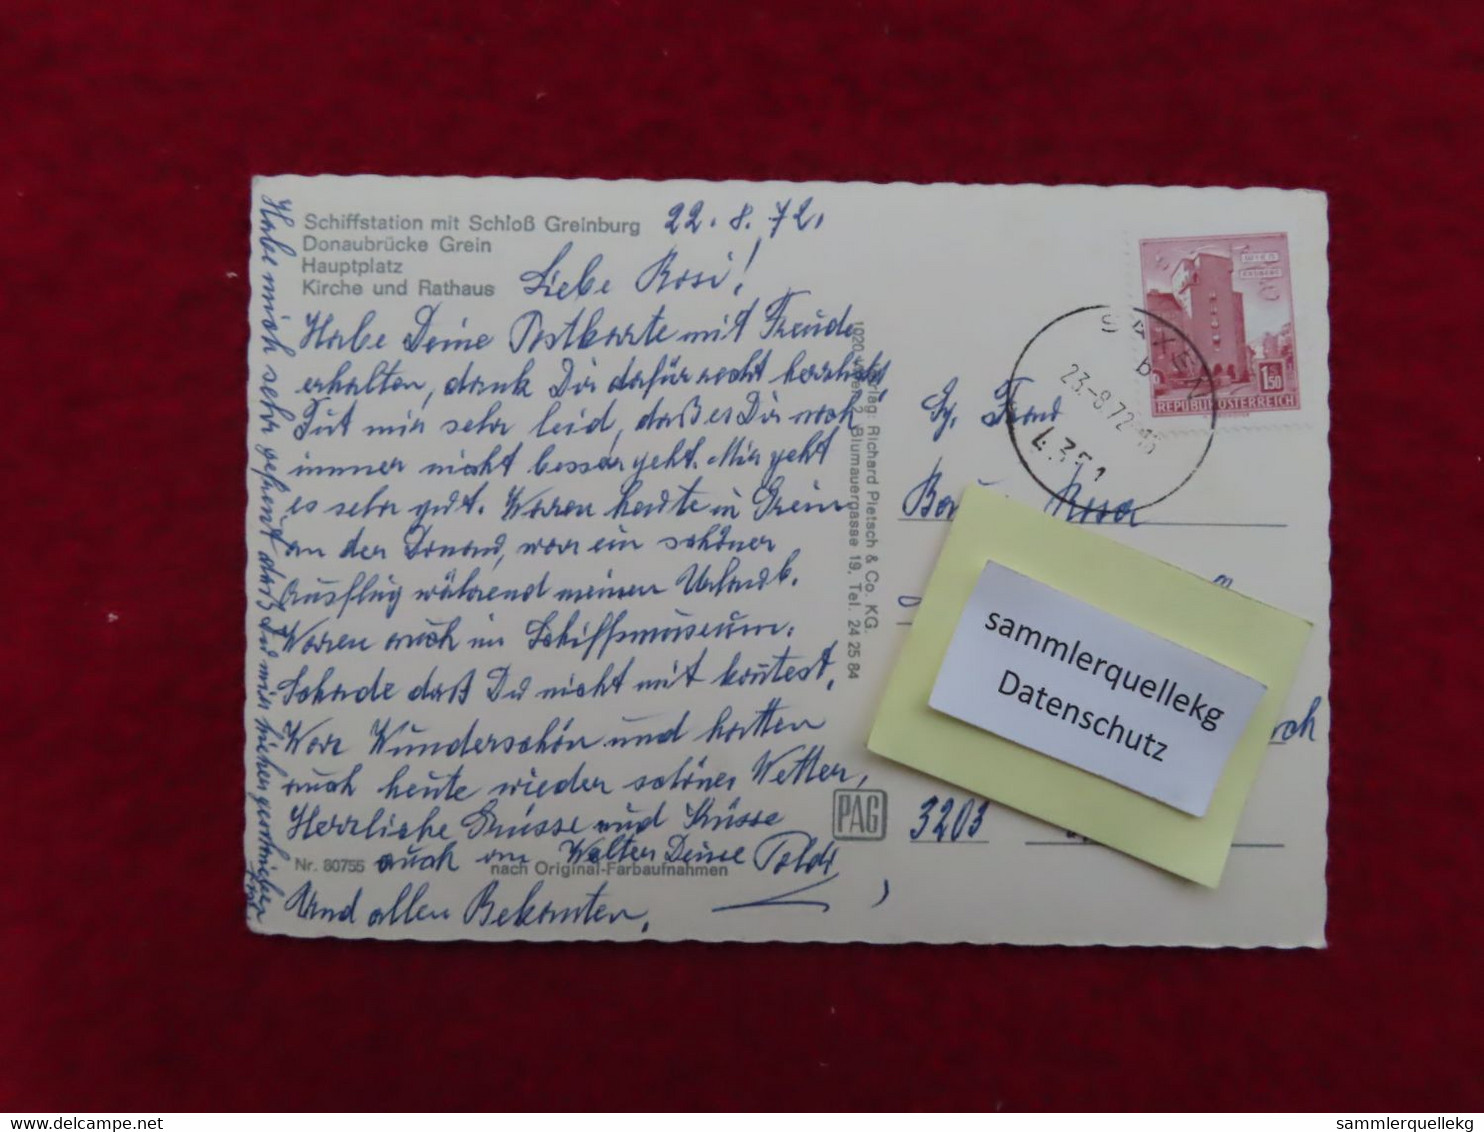 Schiffstation mit Schloß Greinburg
Donaubrücke Grein
Hauptplatz
Kirche und Rathaus
22. 8. 72.
Liebe Rosi!
Habe Deine Postkarte mit Freude
erhalten, dank Dir dafür recht herzlich,
Tut mir sehr leid, daß es Dir noch
immer nicht besser geht. Mir geht
es sehr gut. Waren heute in Grein
an der Donau, war ein schöner
Ausflug während meinen Urlaub.
Waren auch im Schiffsmuseum.
Schade daß Du nicht mit kontest,
War Wunderschön und hatten
auch heute wieder schönes Wetter,
Herzliche Grüsse und Küsse
auch von Walter Deine Poldi
Und allen Bekannten.
Habe mich sehr gefreut daß Du mir hieher geschrieben hast.
Nr. 80755
nach Original-Farbaufnahmen
Verlag: Richard Pietsch & Co. KG.
1020 Wien 2, Blumauergasse 19, Tel. 24 25 84
PAG
SAXEN
b
23.-8.72
4351
1.50
REPUBLIK ÖSTERREICH
Frau
Rosa
3203
sammlerquellekg
Datenschutz
delcampe.net
sammlerquellekg